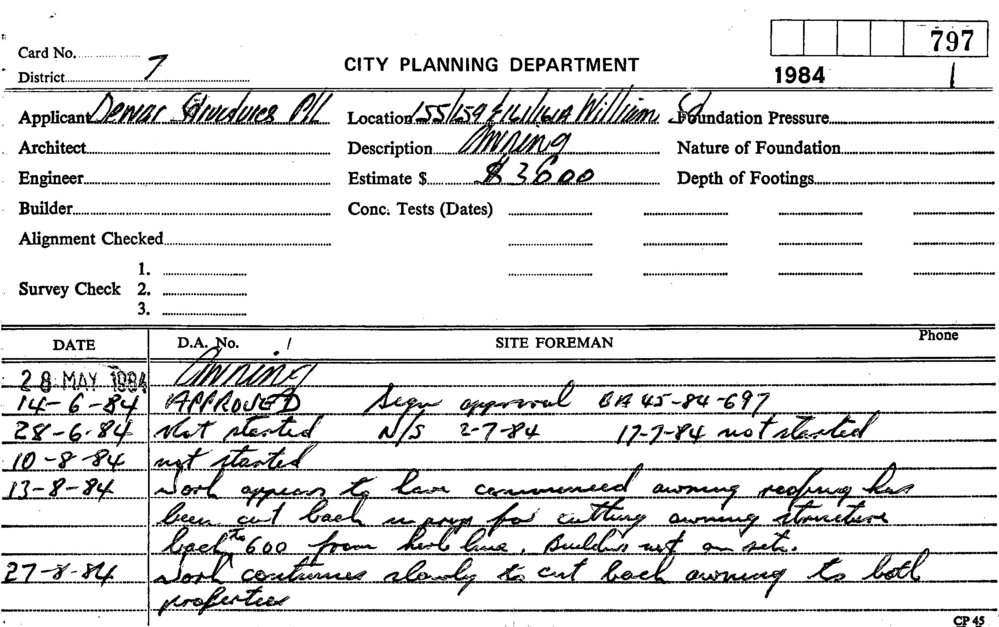 797
Card No.
District 7
CITY PLANNING DEPARTMENT
1984 1
Applicant Dewar Structures P/L Location 155/159 & 161/161A William St Foundation Pressure
Architect Description Awning Nature of Foundation
Engineer Estimate $ $3600 Depth of Footings
Builder Conc. Tests (Dates)
Alignment Checked
1.
Survey Check 2.
3.
DATE D.A. No. / SITE FOREMAN Phone
28 MAY 1984 Awning
14-6-84 APPROVED Sign approval BA 45-84-697
28-6-84 Not started N/S 2-7-84 17-7-84 not started
10-8-84 not started
13-8-84 Work appears to have commenced awning roofing has
been cut back for cutting awning structure
back to 600 from kerb line. Builders not on site.
27-8-84 Work continues slowly to cut back awning to both
properties
CP 45